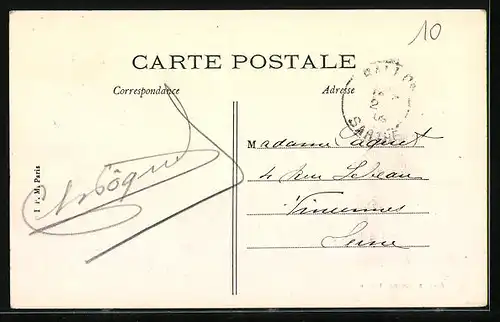 10
CARTE POSTALE
Correspondance
Adresse
BALLON
2
SARTHE
Madame Paquet
4 Rue Lebeau
Vincennes
Seine
I. P. M. Paris